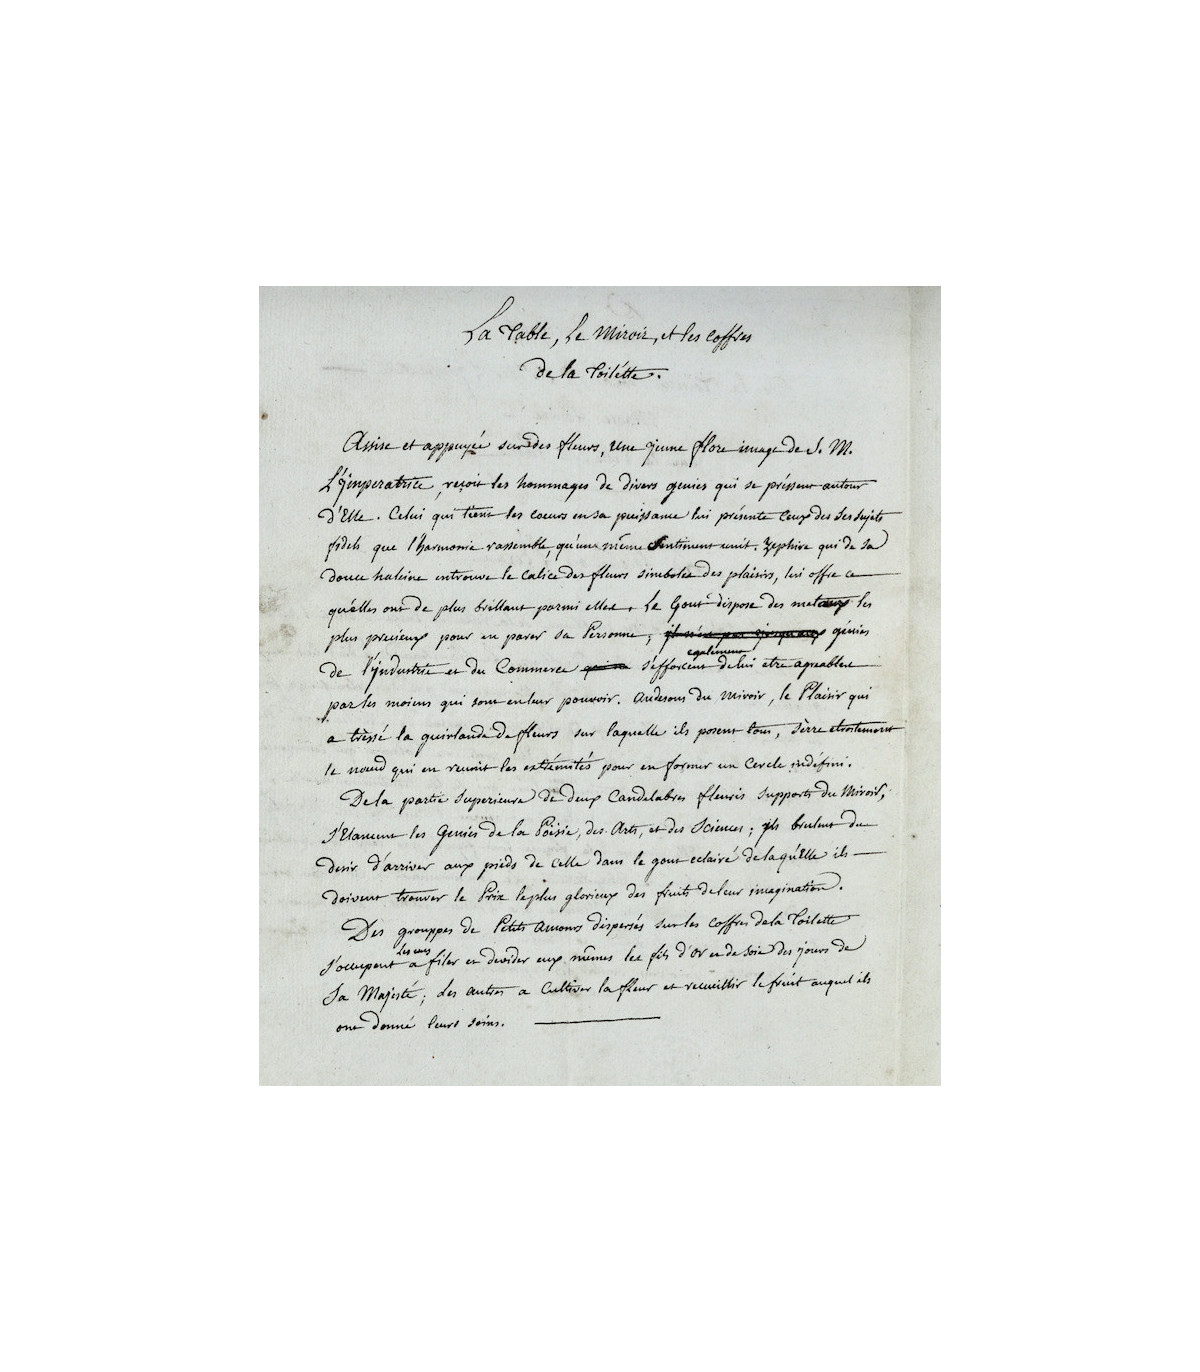 La Table, Le Miroir, et les Coffres
de la Toilétte.
Assise et appuyée sur des fleurs, une jeune flore image de S. M.
L'jmperatrice, reçoit les hommages de divers genies qui se préssent autour
d'Elle. Celui qui tient les coeurs en sa puissance lui présente Ceux des Ses Sujets
fidels que l'harmonie rassemble, qu'un même Sentiment unit. Zephire qui de sa
douce haleine entrouve le calice des fleurs simboles des plaisirs, lui offre ce
qu'elles ont de plus brillant parmi elles. Le Gout dispose des metaux les
plus precieux pour en parer sa Personne, génies
de l'jndustrie et du Commerce s'efforcent egalement de lui etre agreables
par les moiens qui sont en leur pouvoir. Audesous du miroir, le Plaisir qui
a tréssé la guirlande de fleurs sur laquelle ils posent tous, sèrre etroitement
le nœud qui en reunit les extrémités pour en former un Cercle indéfini.
De la partie superieure de deux Candelabres fleuris supports du Miroir,
s'Elancent les Genies de la Poësie, des Arts, et des Sciences; jls brulent du
desir d'arriver aux pieds de celle dans le gout eclairé de laquElle ils
doivent trouver le Prix le plus glorieux des fruits de leur imagination.
Des grouppes de Petits Amours dispersés sur les coffres de la Toilette
s'occupent les uns a filer et devider eux mêmes les fils d'or et de soie des jours de
Sa Majesté; Les autres a Cultiver la fleur et recueillir le fruit auquel ils
ont donné leurs soins.